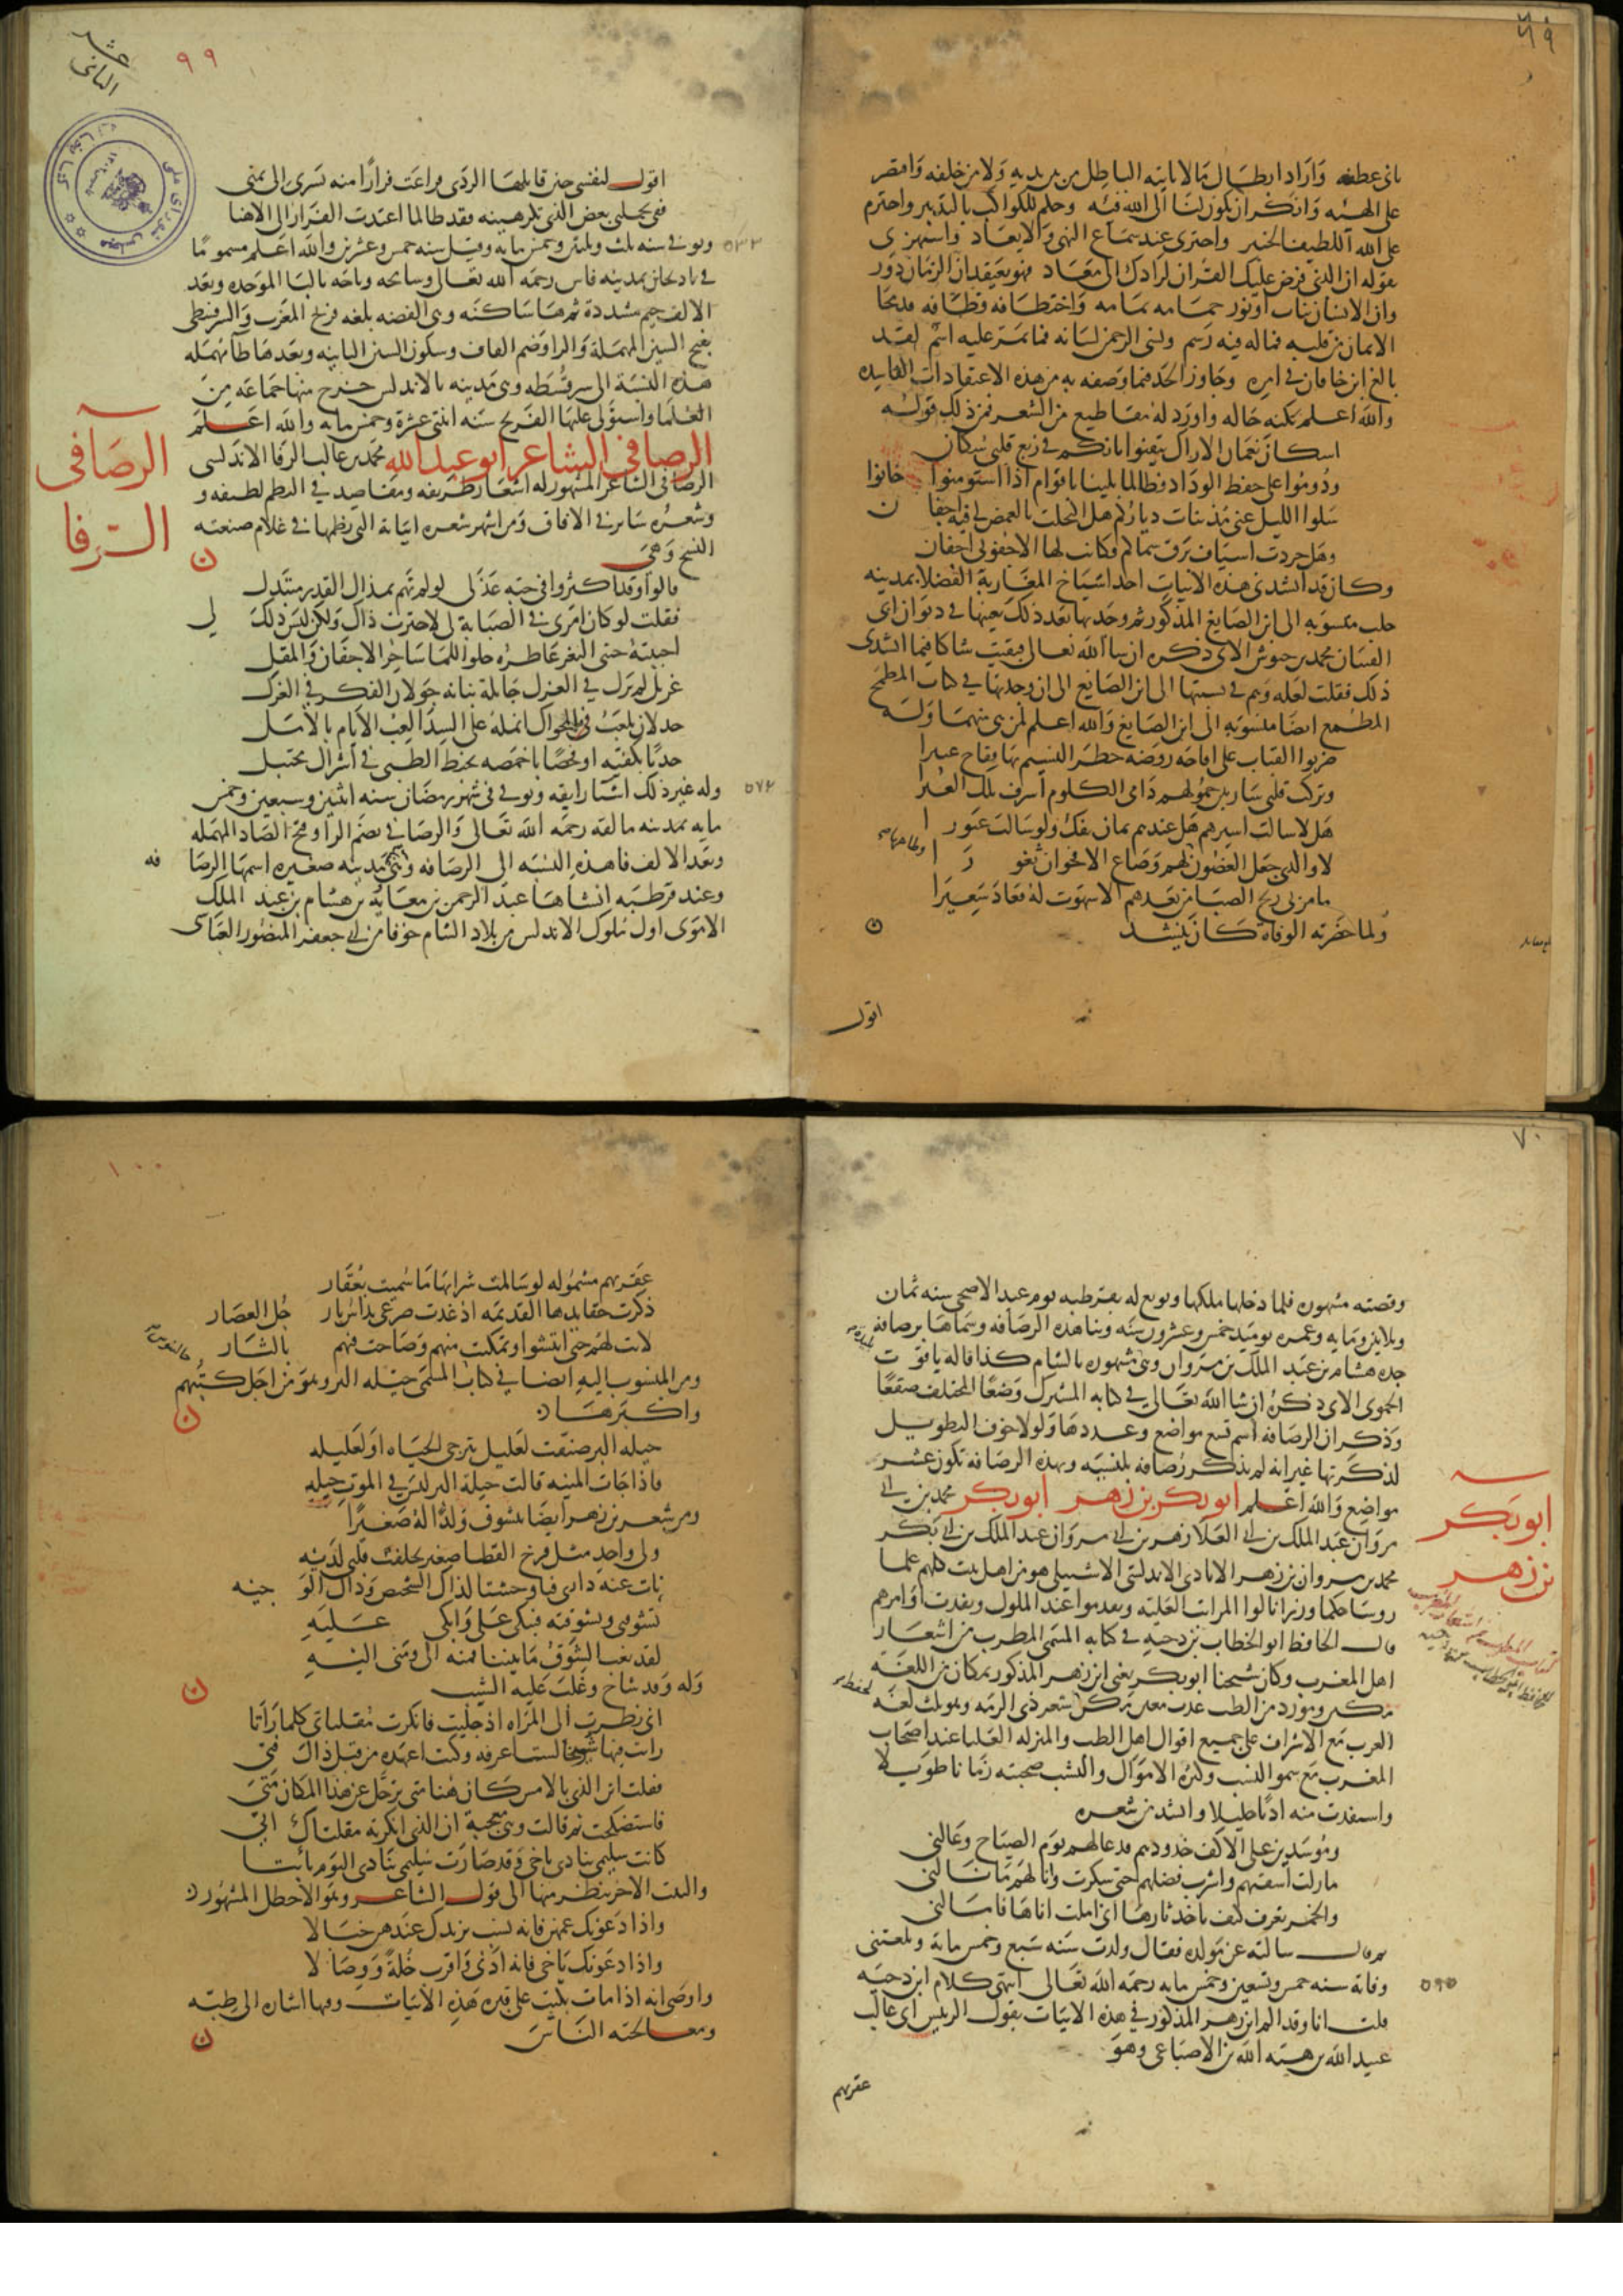 ٦٩
ثانى عطفه وَارَاد ابطَال مَا لا ياتيه الباطِل من بين يديه وَلا من خلفه وَاقتصر
على الهيئه وَانكر ان يكون لنا الى الله فيئه وحكم للكواكب بالتدبير واجترم
على الله اللطيف الخبير واجترى عند سماع النهى وَالايعَاد وَاستهزى
بقوله ان الذى فرض عليك القرآن لرادك الى معَاد فهو يعتقد ان الزمان دَور
وان الانسان نبات او نور حمَامه تمامه وَاختطَافه قطَافه قد محا
الايمان من قلبه فما له فيه رَسم ونسى الرحمن لسَانه فما يمر عليه اسم لقد
بالغ ابن خاقان فى امره وجَاوز الحد فيما وَصفه به من هذه الاعتقادات الفاسده
والله اعلم بكنه حَاله واورَد له مقاطيع من الشعر فمن ذلك قوله
اسكان نعمَان الاراك تيقنوا بانكم فى ربع قلبى سكان
ودُومُوا على حفظ الوداد فطالما بلينا باقوام اذا استومنوا خانوا
سَلوا الليل عنى مذ تنات دياركم هل اكتحلت بالغمض لى فيه اجفان
وهَل جردت اسيَاف برق سماكم فكانت لها الا جفونى اجفان
وكان قد انشدنى هذه الابيات احد اشيَاخ المغَاربة الفضلا بمدينه
حلب منسوبه الى ابن الصَايغ المذكور ثم وجَدتها بعد ذلك بعينها فى ديوان ابى
الفتيَان محمد بن حيوش الاتى ذكره ان شا الله تعالى فبقيت شاكا فيما انشدنى
ذلك فقلت لعله وَهم فى نسبتها الى ابن الصَايغ الى ان وجدتها فى كتاب المطمح
ايضا منسوبه الى ابن الصَايغ وَالله اعلم لمن هى منهمَا وَلـه
ضربوا القباب على اقاحه روضه خطرَ النسيم بها ففاح عبيرا
وتركت قلبى سَار بين حمُولهم دَامى الكلوم يسوق تلك العيرا
هَلا سالت اسيرهم هَل عندهم عان يفك ولو سَالت غيورا
لا والذى جعَل الغصُون معاطفا لهم وَصَاغ الاقحوان ثغورا
ما مر بى ريح الصبَا من بعَدهم الا شهقت له فعَاد سَعِيرَا
وَلما حَضرته الوفاة كان ينشد
اقول
٩٩
الثانى
اقول لنفسى حين قابلهَا الردَى فراعَت فرارًا منه يُسرى الى يمنى
قفى تحملى بعض الذى تكرهينه فقد طالما اعتدت الفرَار الى الاهنا
٥٣٣
وتوفى سنه ثلث وثلثين وخمس مايه وقيل سنه خمس وعشرين والله اعلم مسمومًا
فى باذنجان بمدينه فاس رحمه الله تعالى وباجه بالبا الموَحده وبعد
الالف جيم مشددة ثم هَا سَاكنَه وهى الفضه بلغه فرنج المغرب وَالسرقسطى
بفتح السين المهمَلة وَالرا وَضم القاف وسكون السين الثانيه وبعدهَا طَا مهمَله
هذه النسبَة الى سرقسَطه وهى مَدينه بالاندلس خرج منها جمَاعه مِنَ
العلمَا واستولى عليهَا الفرنج سَنه اثنتى عشرة وخمس مايه والله اعلـم
الرصافى الشاعر ابو عبد الله محمد بن غالب الرفا الاندلسى
الرصَافى
الرفا
الرصَافى الشاعر المشهور له اشعَار ظريفه ومقاصيد فى النظم لطيفه و
وشعرُه سَاير فى الافاق وَمن اشهر شعره ابيَاته التى نظمها فى غلام صنعته
النسج وَهىَ
قالوا وَقد اكثروا فى حبه عَذَلى لو لم تهم بمذال القدر مبتذل
فقلت لو كان امرى فى الصبَابة لى لاخترت ذاكَ وَلكن ليسَ ذلكَ لى
احببته حببى الثغر عَاطره حلو اللمَا سَاحر الاجفَان وَالمقل
غزيل لم تزل فى الغزل جَائلة بنانه جَولان الفكر فى الغزل
جذلان يلعَب بالمحوَاك انمله على السدَا لعِبَ الايام بالامَل
جذبًا بكفيه او فحصًا باخمصه تخبط الظبى فى اشرَاك محتبل
٥٧٢
وله غير ذلك اشيَا رايقه وتوفى فى شهر رمضَان سنه اثنين وسبعين وخمس
مايه بمدينه مالقه رحمَه الله تعَالى وَالرصَافى بضم الرا وفتح الصَاد المهمله
وبعَد الالف فا هذه النسبَه الى الرصَافه وهى مَدينه صغيره اسمهَا الرصَافه
وعند قرطبَه انشاهَا عبد الرحمن بن معَاويَه بن هشام بن عبد الملك
الاموَى اول ملوك الاندلس من بلاد الشام خوفا من ابى جعفر المنصُور العبَاسى
٧٠
وقصته مشهوره فلما دخلها ملكها وبويع له بقرطبه يوم عيد الاضحى سنه ثمان
وثلاثين ومَايه وعمره يوميذ خمس وعشرون سَنه وبنا هذه الرصَافه وسَماهَا برصَافه
جده هشام بن عبَد الملك بن مروان وهى مشهوره بالشام كذا قاله ياقوت
الحموى الاتى ذكرُه ان شا الله تعَالى فى كتابه المشترك وَضعًا المختلف صقعًا
وَذكر ان الرصَافه اسم تسع مواضع وعددهَا وَلولا خوف التطويل
لذكرتها غير انه لم يذكر رصَافه بلنسيَه وبهذه الرصَافه تكون عشر
مواضِع وَالله اعلم ابو بكر بن زهر ابو بكر محمد بن ابى
ابو بَكر
بن زهر
مروَان عَبد الملك بن ابى العَلا زهر بن ابى مروَان عبد الملك بن ابى بكر
محمد بن مروان بن زهر الايادى الاندلسى الاشبيلى هو من اهل بيت كلهم علما
روسَا حكما وزرا نالوا المراتب العَليّه وتقدموا عند الملوك ونفدت اوَامرهم
قال الحافظ ابو الخطاب بن دحيه فى كتابه المسَمى المطرب من اشعَار
اهل المغرب وكان شيخنا ابو بكر يعَنى ابن زهر المذكور بمكان من اللغَه
مكين ومورد من الطب عذب معين كان يحفظ شعر ذى الرمه وهو ثلث لغَه
العرب مَع الاشراف على جميع اقوال اهل الطب والمنزله العَليا عند اصحَاب
المغرب مَع سمو النسب وكثرة الاموَال والنشب صحبته زمَانا طويلا
واستفدت منه ادبًا جليلا وانشد من شعره
ومُوسَدين على الاكف خدودهم قد غالهم نوَم الصبَاح وغالنى
مازلت اسقيهم واشرب فضلهم حتى سكرت ونالهم مَا نالنى
والخمر تعرف كيف تاخذ ثارهَا انى املت اناهَا فامَالنى
ثم قال سالته عن مولده فقال ولدت سَنه سَبع وخمس ماية وبلغتنى
٥٩٥
وفاته سنه خمس وتسعين وخمس مايه رحمَه الله تعَالى انتهى كلام ابن دحيَه
قلت انا وقد الم ابن زهر المذكور فى هذه الابيَات بقول الرييس ابى غالب
عبيد الله بن هبَه الله بن الاصبَاعى وهوَ
عقرتهم
١٠٠
عَقرتهم مشمُوله لو سَالمت شرابهَا مَا سُميت بعُقَار
ذكرت حقايدها القديمَه اذ غدت صرعى تداسُ بارجُل العصَار
لانت لهُم حتى انتشوا وتمكنت منهم وَصَاحت فيهم بالثار
ومن المنسوب اليهِ ايضا فى كتاب المسَمى حيله البر وهوَ من اجَل كتبهم
وَاكبرهَا
حيله البر صنفت لعَليل يترجى الحيَاه اوَ لعَليله
فاذا جَات المنيه قالت حيلة البر ليسَ فى الموت حِيله
ومن شعر بن زهر ايضا يتشوف وَلدًا لهُ صَغيرًا
ولى واحد مثل فرخ القطا صغير تخلفت قلبى لديْه
نات عنه دارى فيا وحشتا لذاك الشخيص وذاك الوجيه
تشوقنى وتشوقته فيبكى عَلى وَابكى عَـلـيه
لقد تعَب الشوَقُ مَا بيننا فمنه الى وَمنى اليـهِ
وَله وَقد شاخ وغلب عَليه الشيب
انى نظرت الى المرَاه اذ جُليت فانكرت مقلتاى كلمَا رَاتا
رايت فيها شُويخا لست اعرفه وكنت اعهده من قبَل ذاكَ فتى
فقلت اين الذى بالامس كان هُنا متى ترحَّل عن هذا المكان مَتى
فاستضحكت ثم قالت وهى معجبة ان الذى انكرته مقلتاك اتى
كانت سليمى تنادى يا اخى وَقد صَارَت سُليمى تنادى اليَوم يا ابتا
والبيت الاخر ينظر منهَا الى قول الشاعر وهوَ الاخطل المشهُور
واذا دَعَونك عمهن فانه نسب يزيدك عندهن خبَالا
واذا دعَونك يَا اخى فانه ادنى وَاقرب خلة وَوِصَالا
واوصَى انه اذا مات يكتب على قبره هَذهِ الابيَات وفيها اشاره الى طبّه
ومعالجته النَاس